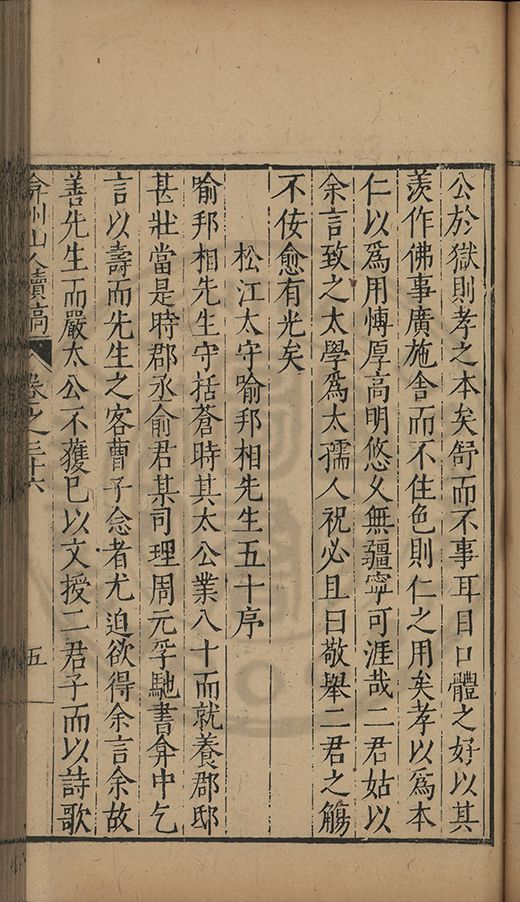 公於獄則孝之本矣舒而不事耳目口體之好以其
羨作佛事廣施舎而不住色則仁之用矣孝以爲本
仁以爲用慱厚高明悠乆無疆寧可涯哉二君姑以
余言致之太學爲太孺人祝必且曰敬舉二君之觴
不佞愈有光矣
松江太守喻邦相先生五十序
喻邦相先生守括蒼時其太公業八十而就養郡邸
甚壯當是時郡丞俞君某司理周元孚馳書弇中乞
言以壽而先生之客曹子念者尤迫欲得余言余故
善先生而嚴太公不獲巳以文授二君子而以詩歌
弇州山人續稿 卷之三十六 五